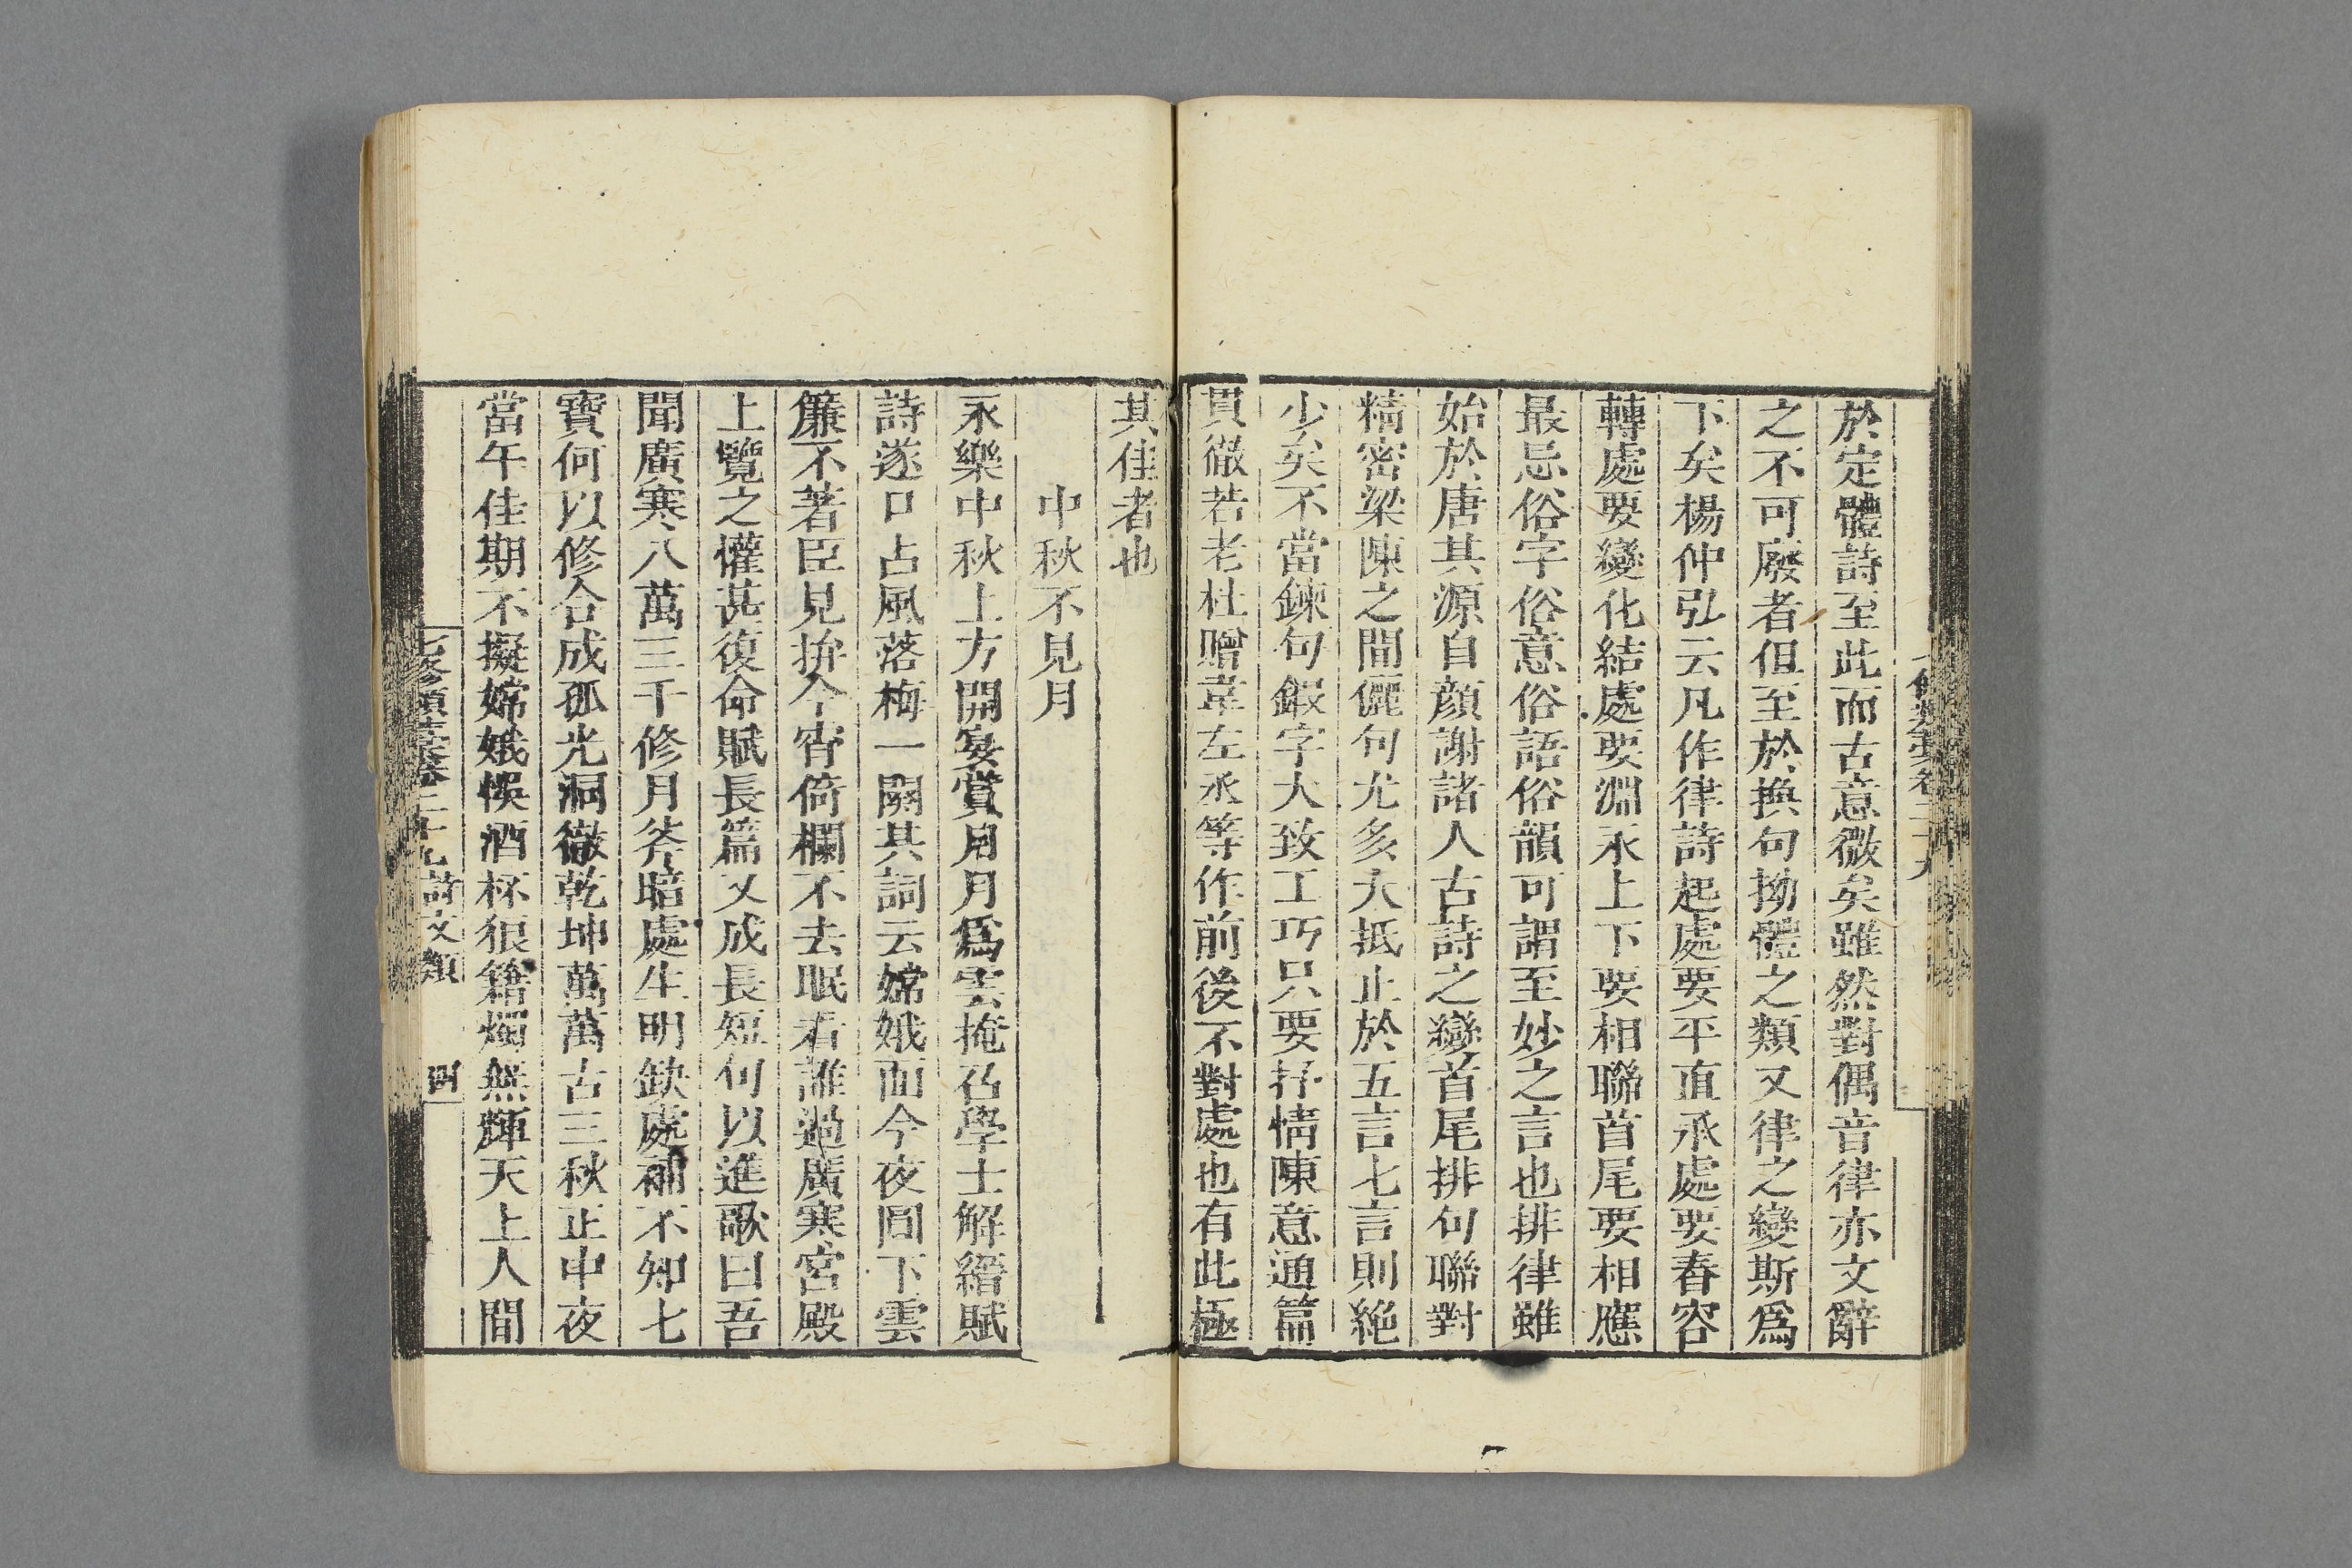 於定體詩至此而古意微矣雖然對偶音律亦文辭
之不可廢者但至於換句拗體之類又律之變斯爲
下矣楊仲弘云凡作律詩起處要平直承處要舂容
轉處要變化結處要淵永上下要相聯首尾要相應
最忌俗字俗意俗語俗韻可謂至妙之言也排律雖
始於唐其源自顔謝諸人古詩之變首尾排句聯對
精密梁陳之間儷句尤多大抵止於五言七言則絶
少矣不當鍊句鍜字大致工巧只要抒情陳意通篇
貫徹若老杜贈韋左丞等作前後不對處也有此極
其佳者也
中秋不見月
永樂中秋上方開宴賞月月爲雲掩召學士解縉賦
詩遂口占風落梅一闋其詞云嫦娥面今夜圓下雲
簾不著臣見拚今宵倚欄不去眠看誰過廣寒宮殿
上覽之懽甚復命賦長篇又成長短句以進歌曰吾
聞廣寒八萬三千修月斧暗處生明缺處補不知七
寶何以修合成孤光洞徹乾坤萬萬古三秋正中夜
當午佳期不擬嫦娥悞酒杯狼籍燭無輝天上人間
七修類藁卷二十九 詩文類 四